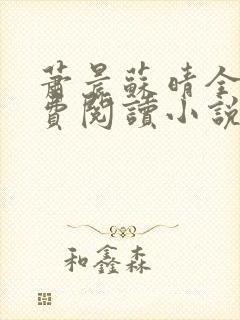 蕭晨蘇晴全
費閱讀小說
和鑫森